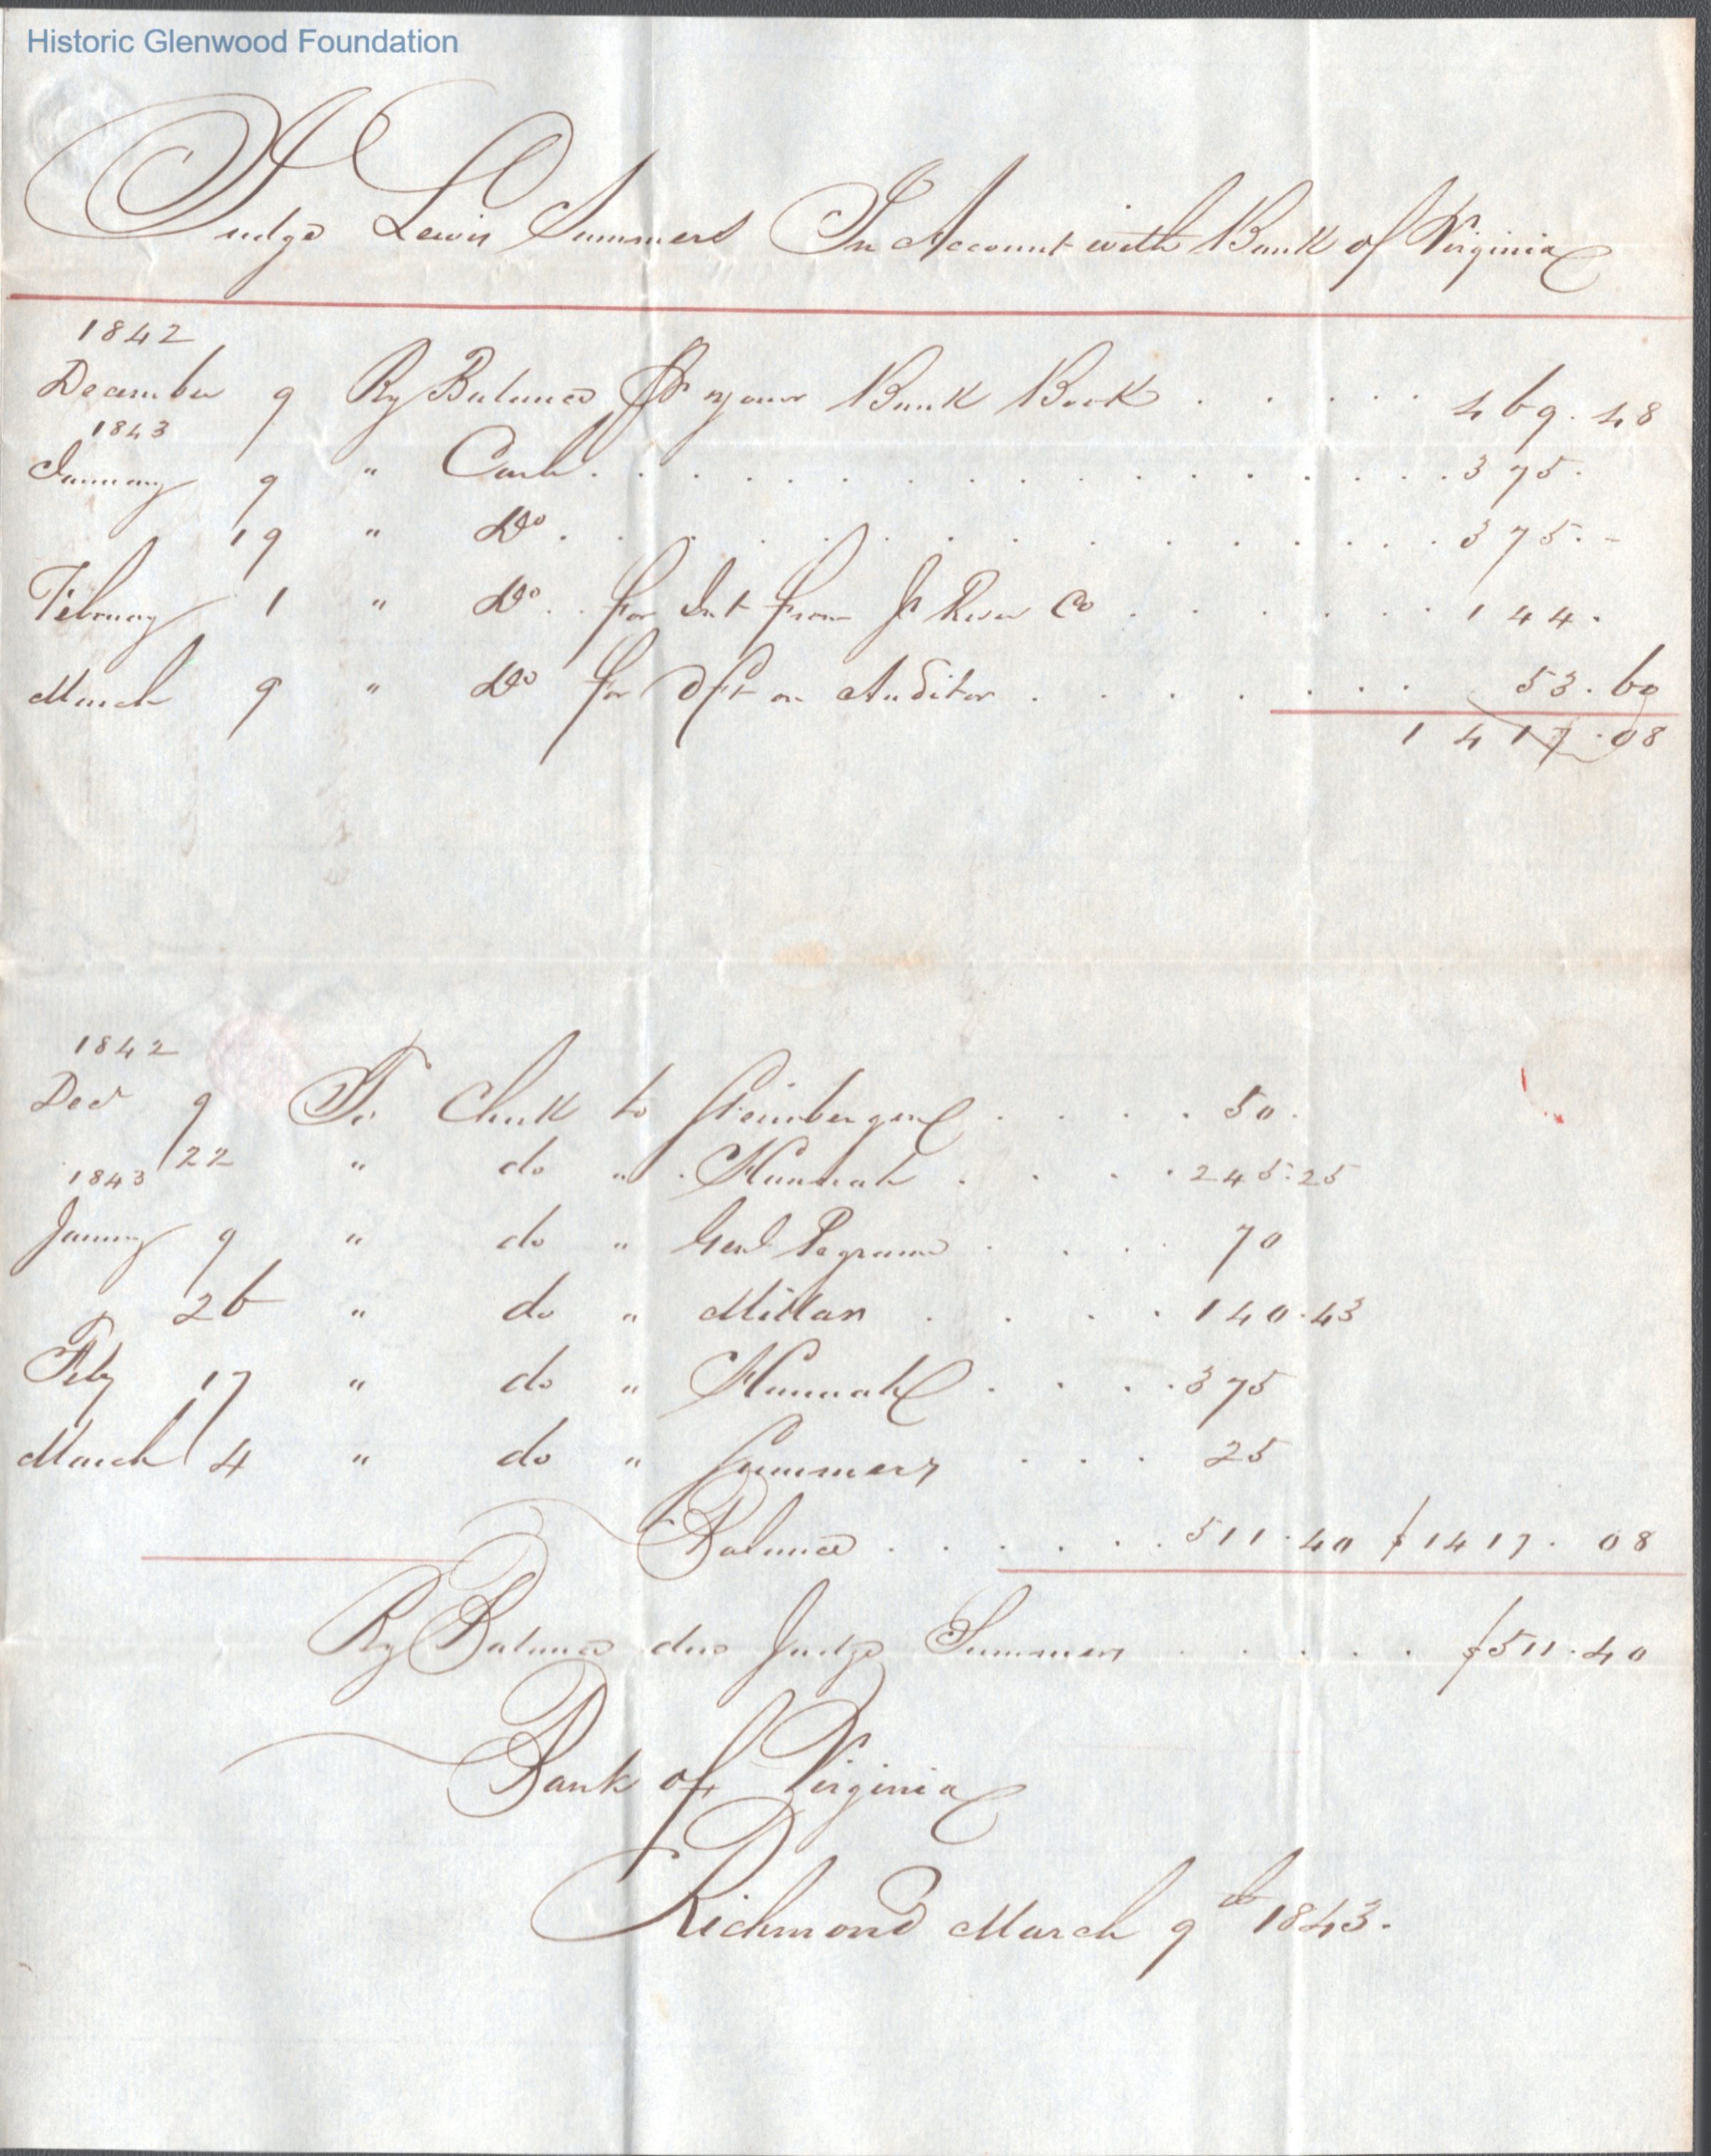 Historic Glenwood Foundation
Judge Lewis Summers In Account with Bank of Virginia
1842
December 9 By Balance Pr your Bank Book . . . . . 469.48
1843
January 9 " Cash . . . . . . . . . . . . . . . 375.
19 " Do . . . . . . . . . . . . . . . 375.-
February 1 " Do . . for Int from Js River Co . . . . . . 144.
March 9 " Do for Dft on Auditor . . . . . . . 53.60
1417.08
1842
Decr 9 To Check to Steinbergen . . . . 50.
22 " do " Hannah . . . . 245.25
1843
January 9 " do " Genl Pegram . . . 70
26 " do " Millan . . . . 140.43
Feby 17 " do " Hannah . . . . 375
March 4 " do " Summers . . . 25
Balance . . . . . . 511.40 $1417.08
By Balance due Judge Summers . . . . . $511.40
Bank of Virginia
Richmond March 9th 1843.